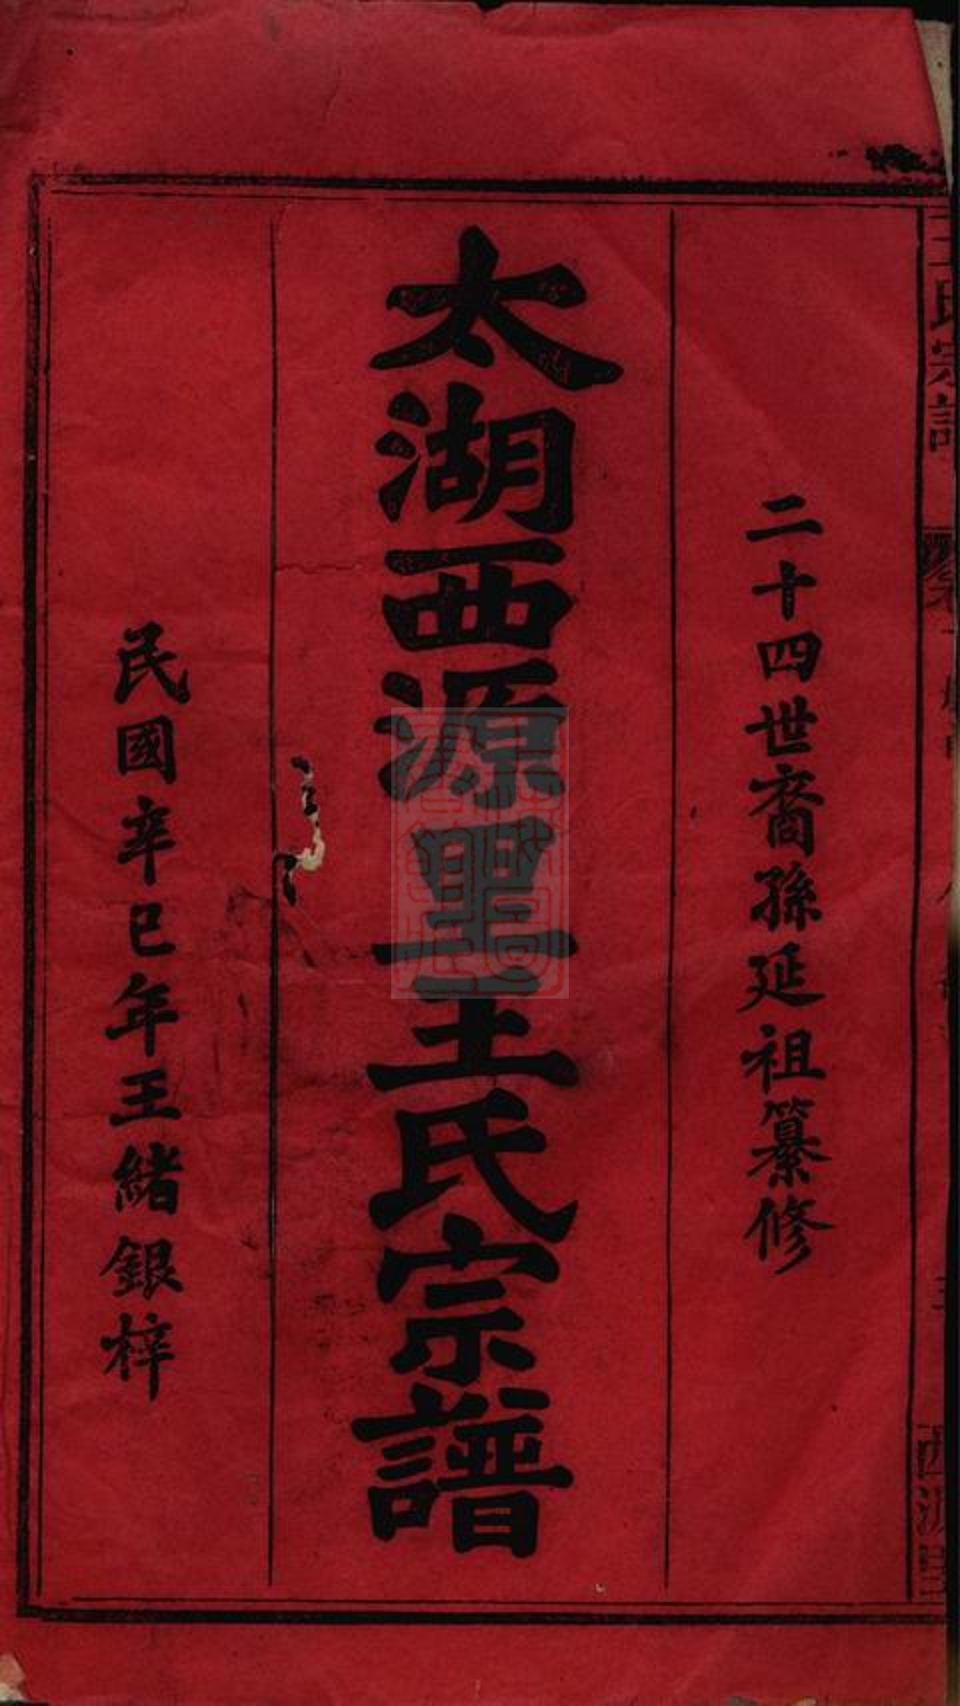 二十四世裔孫延祖纂修
太湖西源里王氏宗譜
民國辛巳年王緒銀梓